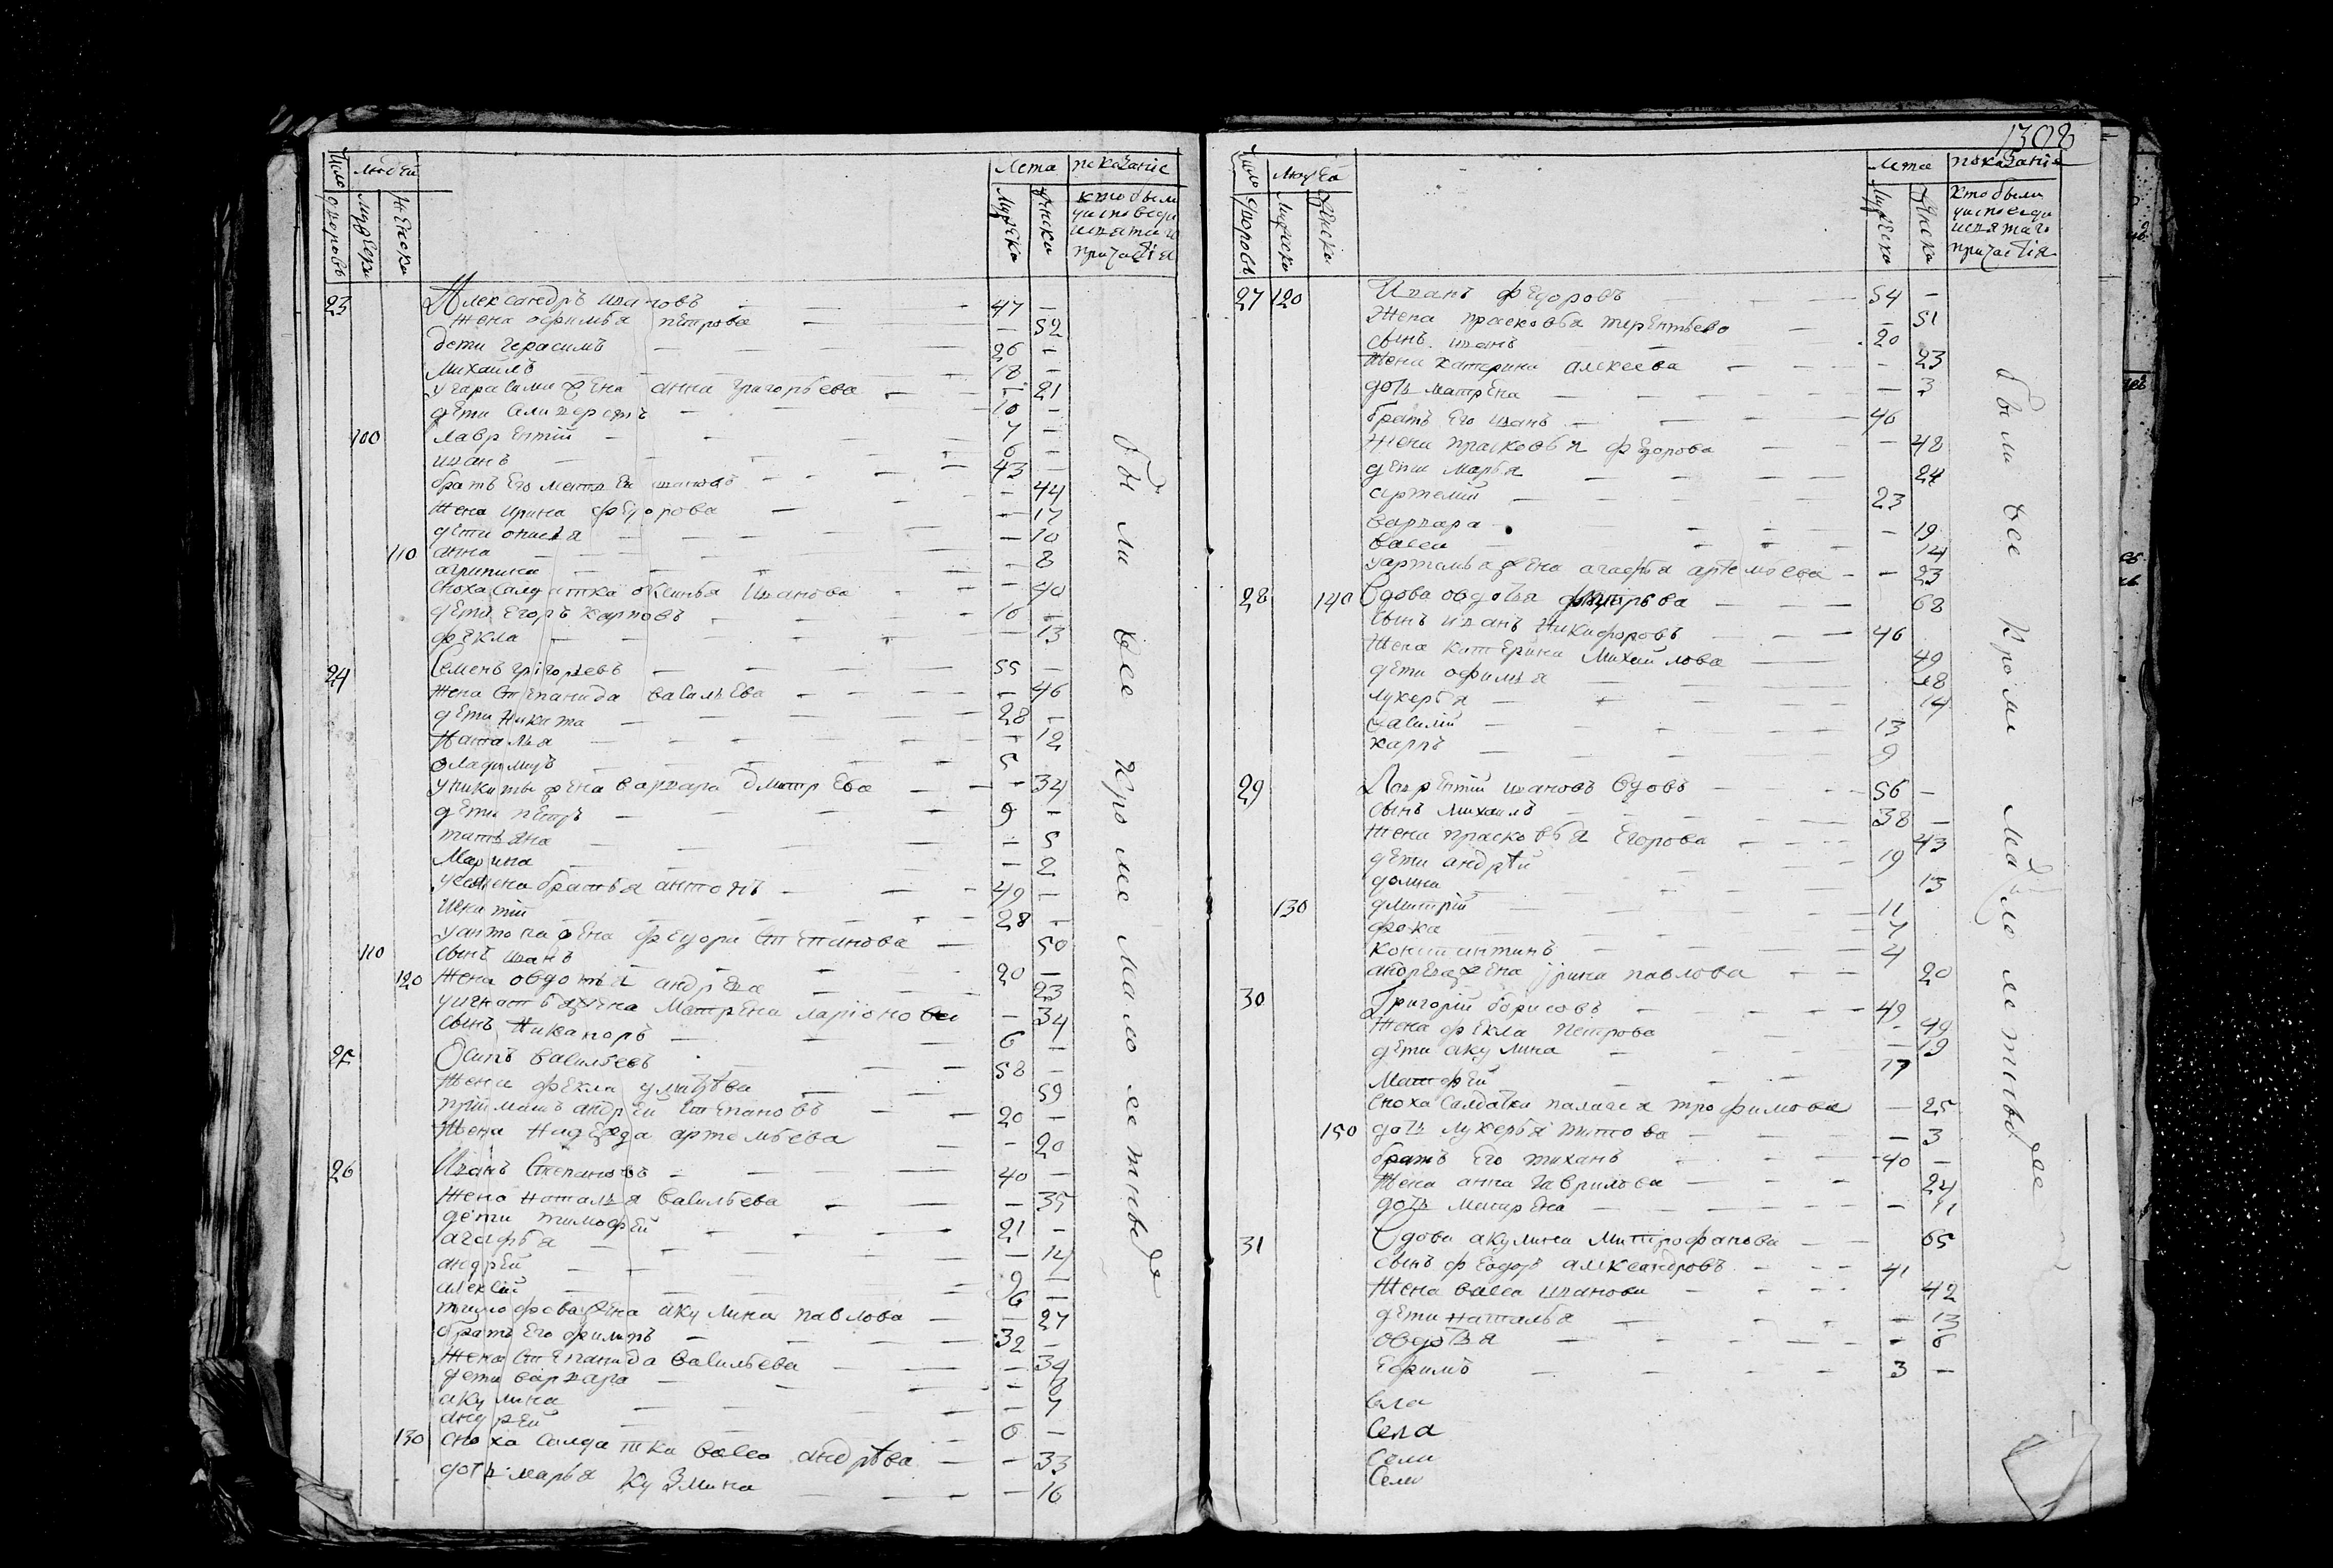 число дворовъ
людей
мужеска
женска
лета
мужеска
женска
показание
кто были
у исповеди
и святаго
причастiя
23 Александръ ивановъ 47 —
жена офимья петрова — 52
дети герасимъ 26 —
михайлъ 18 —
у гарасима жена анна григорьева — 21
дети 10 —
100 лаврентiй 7 —
иванъ 6 —
братъ его матвей ивановъ 43 —
жена ирина федорова — 44
дети — 17
110 анна — 10
агрипина — 8
сноха салдатка оксинья Иванова — 40
дети егоръ карповъ 10 —
фекла — 13
24 Семенъ григорьевъ 55 —
жена степанида васильева — 46
дети никита 28 —
наталья — 12
владимиръ 5
у никиты жена варвара дмитрева — 34
дети петръ 9 —
татьяна — 5
марина — 2
у семена братья антонъ 49 —
28 —
у антона жена федора степанова 50
110 сынъ иванъ 20 —
120 жена овдотья андрева 23
жена матрена ларiонова — 34
сынъ никаноръ 6 —
25 Осипъ васильевъ 58 —
жена фекла 59
прiимашъ андрей степановъ 20 —
жена надежда артемьева — 20
26 Иванъ Степановъ 40 —
жена наталья васильева — 35
дети тимофей 21 —
агафья — 14
андрей 9 —
алексей 6 —
тимофева жена акулина павлова — 27
братъ его филипъ 32 —
жена степанида васильева — 34
дети варвара — 8
акулина — 7
андрей 6 —
130 сноха салдатка васса андрѣва — 33
доть марья кузмина — 16
были все кроме малолетныхъ
1308
число дворовъ
людей
мужеска
женска
лета
мужеска
женска
показанiе
кто были
у исповеди
и святаго
причастiя
27 120 Иванъ федоровъ 54 —
жена прасковья терентьева — 51
сынъ иванъ 20
жена катерина алексеева — 23
доть матрена — 3
братъ его иванъ 46
жена прасковья федорова — 48
дети марья 24
артемiй 23
варвара — 19
васса 14
у артемья жена агафья артемьева — 23
28 140 Вдова овдотья 68
сынъ иванъ никифоровъ 46
жена катерина михайлова 49
дети офимья 18
лукерья 14
василiй 13
карпъ 9
29 Лаврентiй ивановъ вдовъ 56 —
сынъ михаилъ 38 —
жена прасковья егорова 43
дети андрѣй 19
домна 13
130 дмитрiй 11
фока 7
константинъ 4
андреева жена ирина павлова 20
30 Григорiй борисовъ 49
жена фекла петрова — 49
дети акулина — 19
матфей 17
сноха салдатка палагея трофимова — 25
150 доть лукерья титова — 3
братъ его тиханъ 40 —
жена анна гаврилова 24
доть матрена — 11
31 Вдова акулина митрофанова 65
сынъ федоръ александровъ 41
жена васса иванова 42
дети наталья — 13
овдотья — 6
ефимъ 3 —
Села
Села
Села
были все кроме малолетныхъ